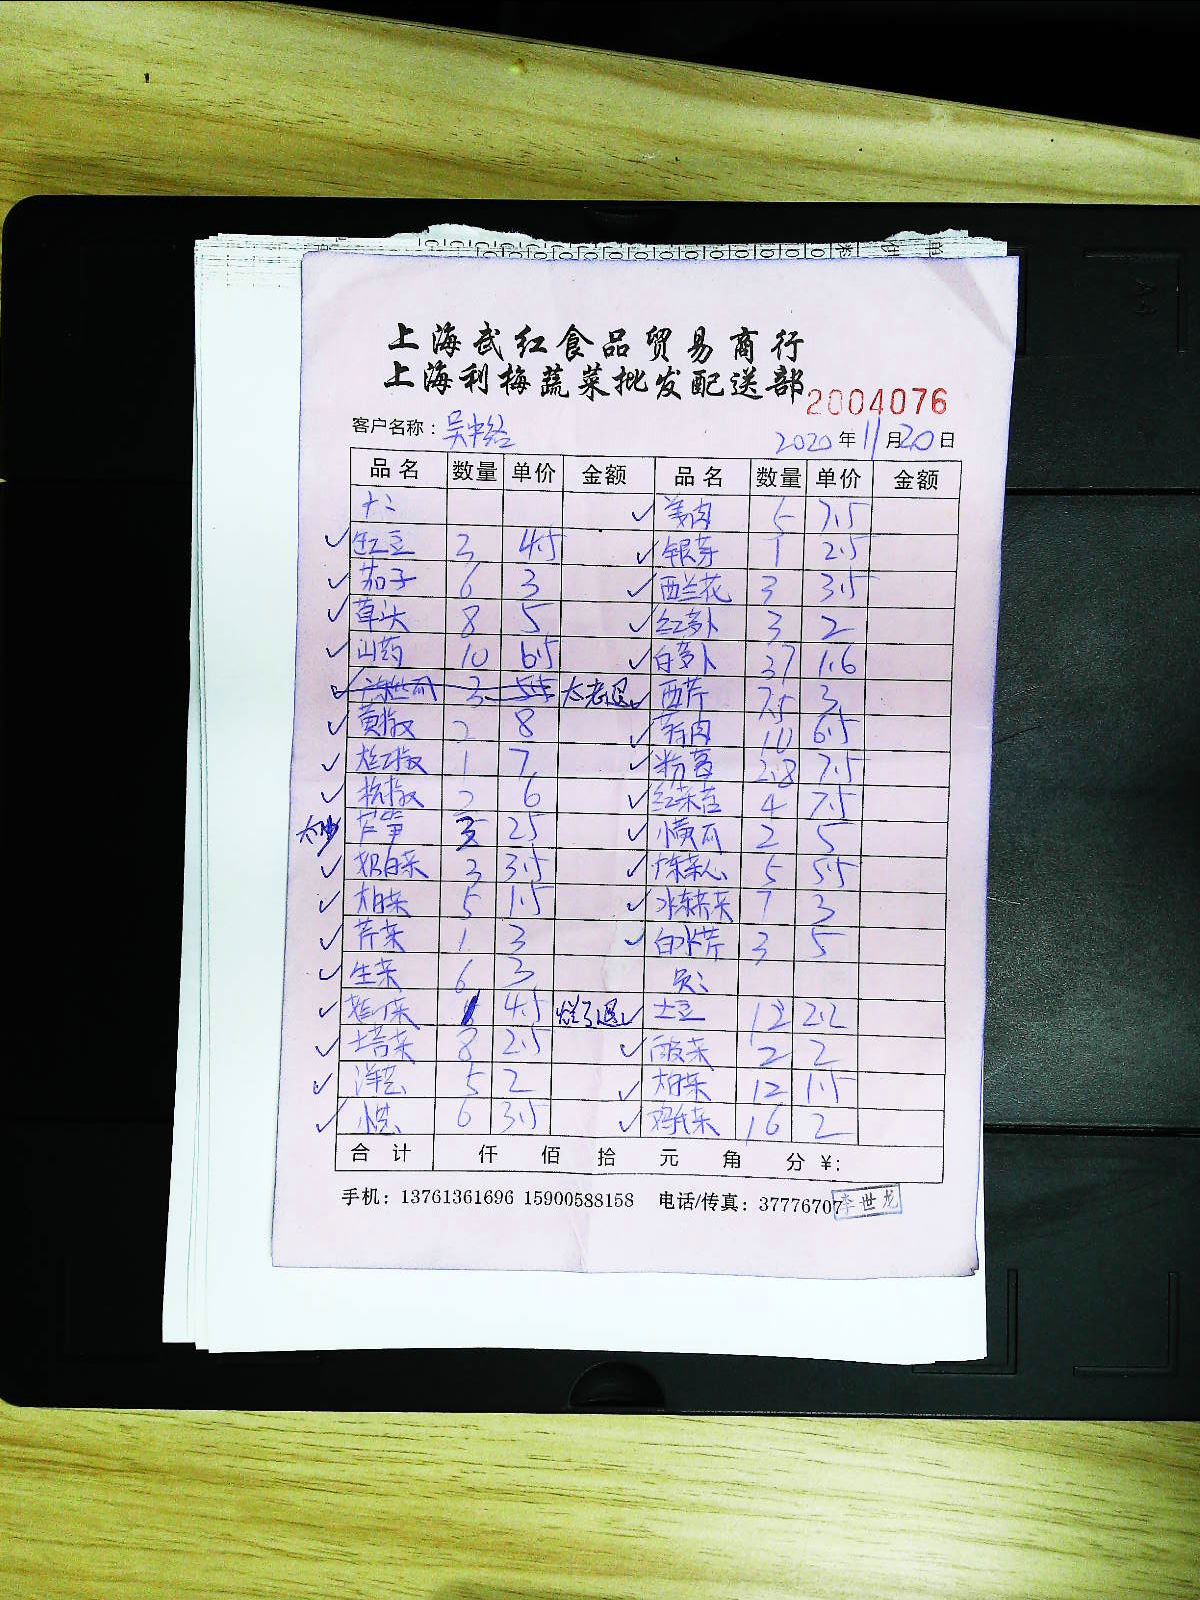 上海武红食品贸易商行
上海利梅蔬菜批发配送部
2004076
客户名称：吴中路 2020年11月20日
品名 数量 单价 金额 品名 数量 单价 金额
十二 姜肉 5 7.5
豇豆 3 4.5 银芽 1 2.5
茄子 6 3 西兰花 3 3.5
草头 8 5 红萝卜 3 2
山药 10 6.5 白萝卜 37 1.6
3 5.5 太老退 西芹 7.5 3
黄椒 2 8 肉 10 6.5
大红椒 1 7 粉葛 2.8 7.5
椒 2 6 红菜苔 4 7.5
太少 芦笋 25 小黄瓜 2 5
白菜 3 3.5 菜心 5 5.5
大白菜 5 1.5 冰冻菜 7 3
芹菜 1 3 白水芹 3 5
生菜 6 3
4.5 烂了退 土豆 12 2.2
塔菜 8 2.5 酸菜 2 2
洋葱 5 2 大白菜 12 1.5
小葱 6 3.5 鸡毛菜 16 2
合计 仟 佰 拾 元 角 分 ¥:
手机：13761361696 15900588158 电话/传真：37776707
李世龙